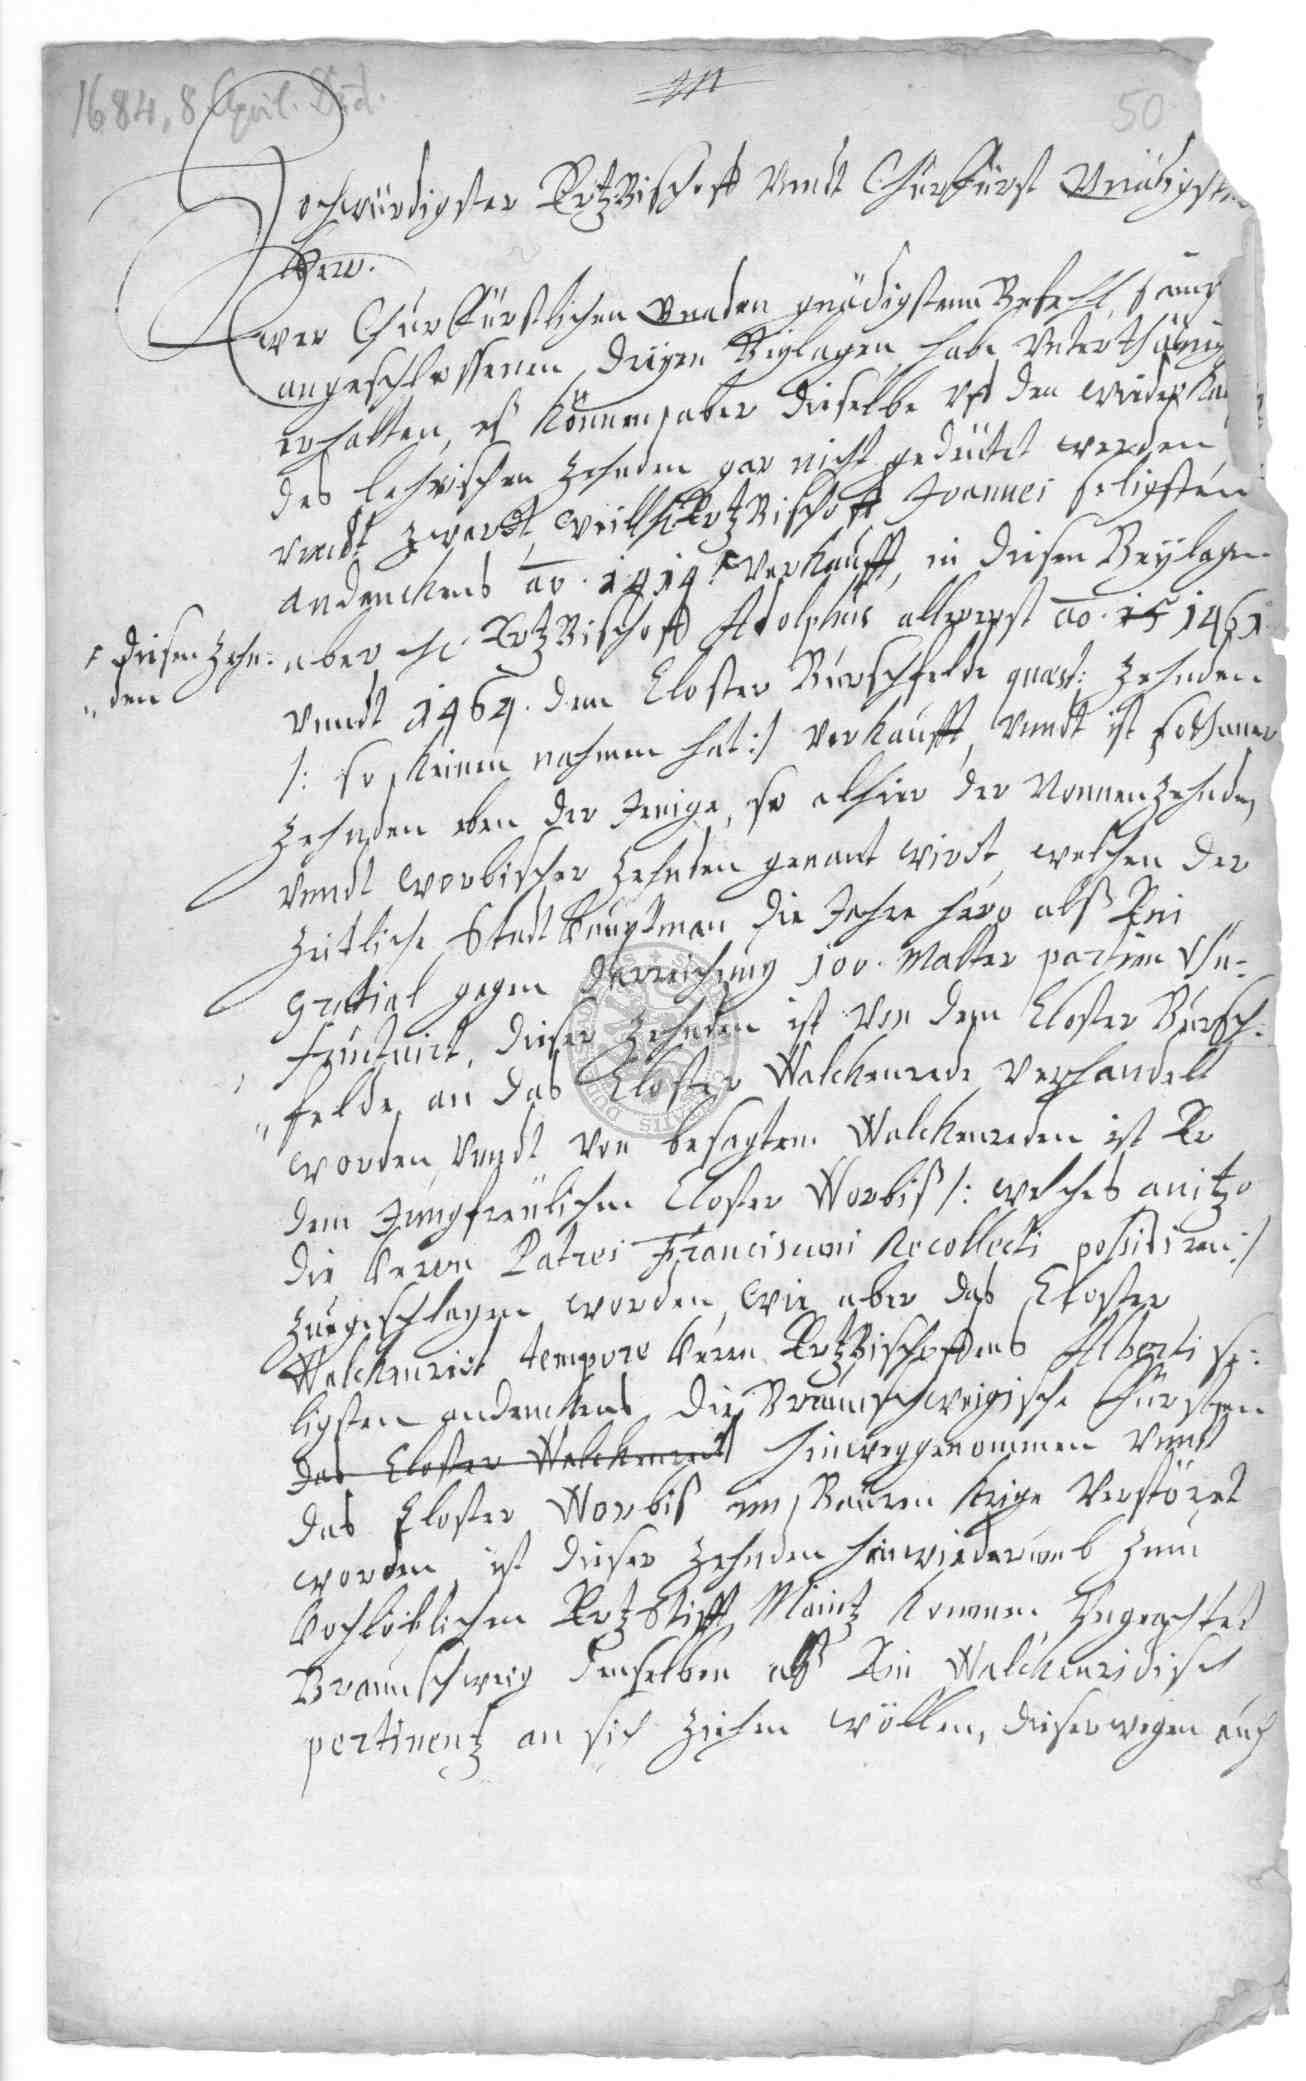 1684, 8 April. Dud.
50
Hochwürdigster ErtzBischoff Vnndt Churfürst Gnädigster
Herr.
Ewer Churfürstlichen Gnaden gnädigstenn Befelch, sampt
angeschlossenen dreyen Beylagen, habe Vnterthänigst
erhalten, es können aber dieselbe vff den wiederkauff
des Lehrischen Zehnden gar nicht gedeutet werden,
vnndt zwardt, weill H. ErtzBischoff Joannes seligsten
andenckens ao. 1414 Verkaufft, in diesen Beylagen
# diesen Zehn-
den
aber H. ErtzBischoff Adolphus allererst ao. 15 1461
vnndt 1464. dem Closter Burschfelde quaest: Zehnden
/: so keinen nahmen hat :/ Verkaufft, Vnndt ist sothaner
Zehnden eben der Jenige, so alhier der Nonnen Zehnde,
Vnndt Worbischer Zehnden genant wirdt, welchen der
Zeitliche Stadt Hauptman die Jahre hero alß Ein
gratial gegen darreichung 100. Malter partim Vsu-
fructuirt, dieser Zehnden ist von dem Closter Bursch-
felde an das Closter Walckenrede verhandelt
worden, Vnndt von besagtem Walckenreden ist Er
dem Jungfreülichen Closter Worbiß /: welches anitzo
die Herrn Patres Franciscani Recollecti possidiren :/
Zuegeschlagen worden, wie aber das Closter
Walckenriet tempore Herrn ErtzBischoffens Alberti se-
ligsten andenckens die Braunschweigische Fürsten
das Closter Walckenriet hinweggenommen Vnndt
das Closter Worbiß im Bauren Krige Verstöret
worden, ist dieser Zehnden hinwiederumb Zum
Hochlöblichen ErtzStifft Maintz kommen, Vngeachtet
Braunschweig denselben alß Ein Walckenridisch
pertinentz an sich Ziehen wöllen, dieserwegen auch